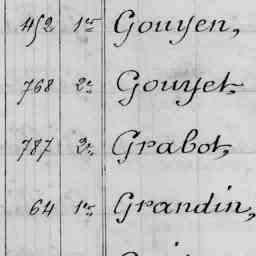 452 1er Gouyen,
768 2e Gouyet,
787 2e Grabot,
64 1er Grandin,